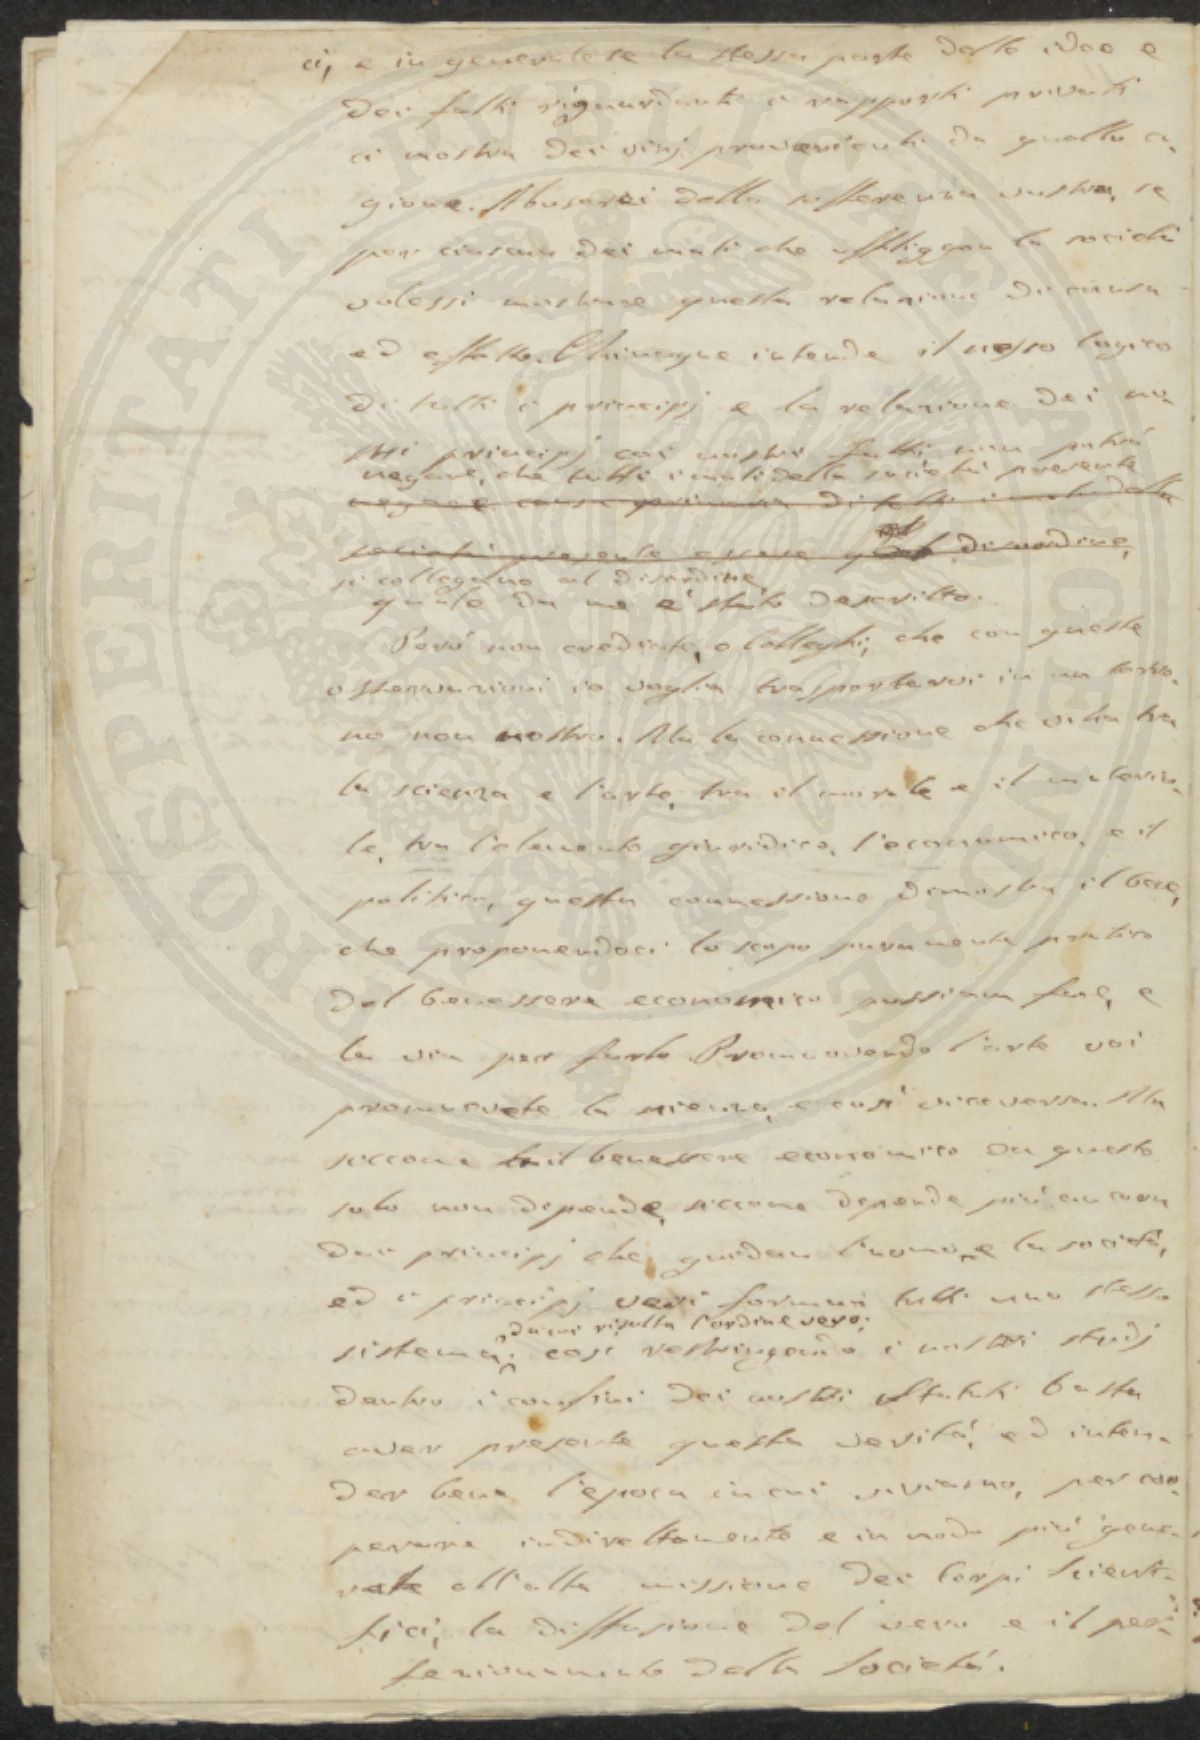 ci, e in generale se la stessa parte delle idee e
dei fatti riguardanti i rapporti privati
ci mostra dei vizj provenienti da quella ca-
gione. Abuserei della sofferenza vostra, se
per ciascun dei mali che affliggon la società
volessi mostrare questa relazione di causa
ed effetto. Chiunque intende il nesso logico
di tutti i principj e la relazione dei no-
stri principj coi nostri fatti non potrà
negare, che tutti i mali della società presente
negare causa primaria di tutti i mali della
società presente essere quel disordine,
si collegano al disordine
quale da me è stato descritto.
Però non crediate, o Colleghi, che con queste
osservazioni io voglia trasportarvi in un terre-
no non nostro. Ma la connessione che vi ha tra
la scienza e l'arte, tra il morale e il materia-
le, tra l'elemento giuridico, l'economico, e il
politico, questa connessione dimostra il bene,
che proponendoci lo scopo puramente pratico
del benessere economico possiam fare, e
la via per farlo. Promuovendo l'arte voi
promuovete la scienza, e così viceversa. Ma
siccome il benessere economico da questo
solo non dipende, siccome dipende più ancora
dai principj che guidan l'uomo e la società,
ed i principj veri forman tutti uno stesso
da cui risulta l'ordine vero;
sistema; così restringendo i nostri studj
dentro i confini dei nostri Statuti basta
aver presente questa verità, ed inten-
der bene l'epoca in cui viviamo, per coo-
perare indirettamente e in modo più gene-
rale all'alta missione dei Corpi Scienti-
fici, la diffusione del vero e il per-
fezionamento della Società.
PROSPERITATI PVBLICAE AVGENDAE